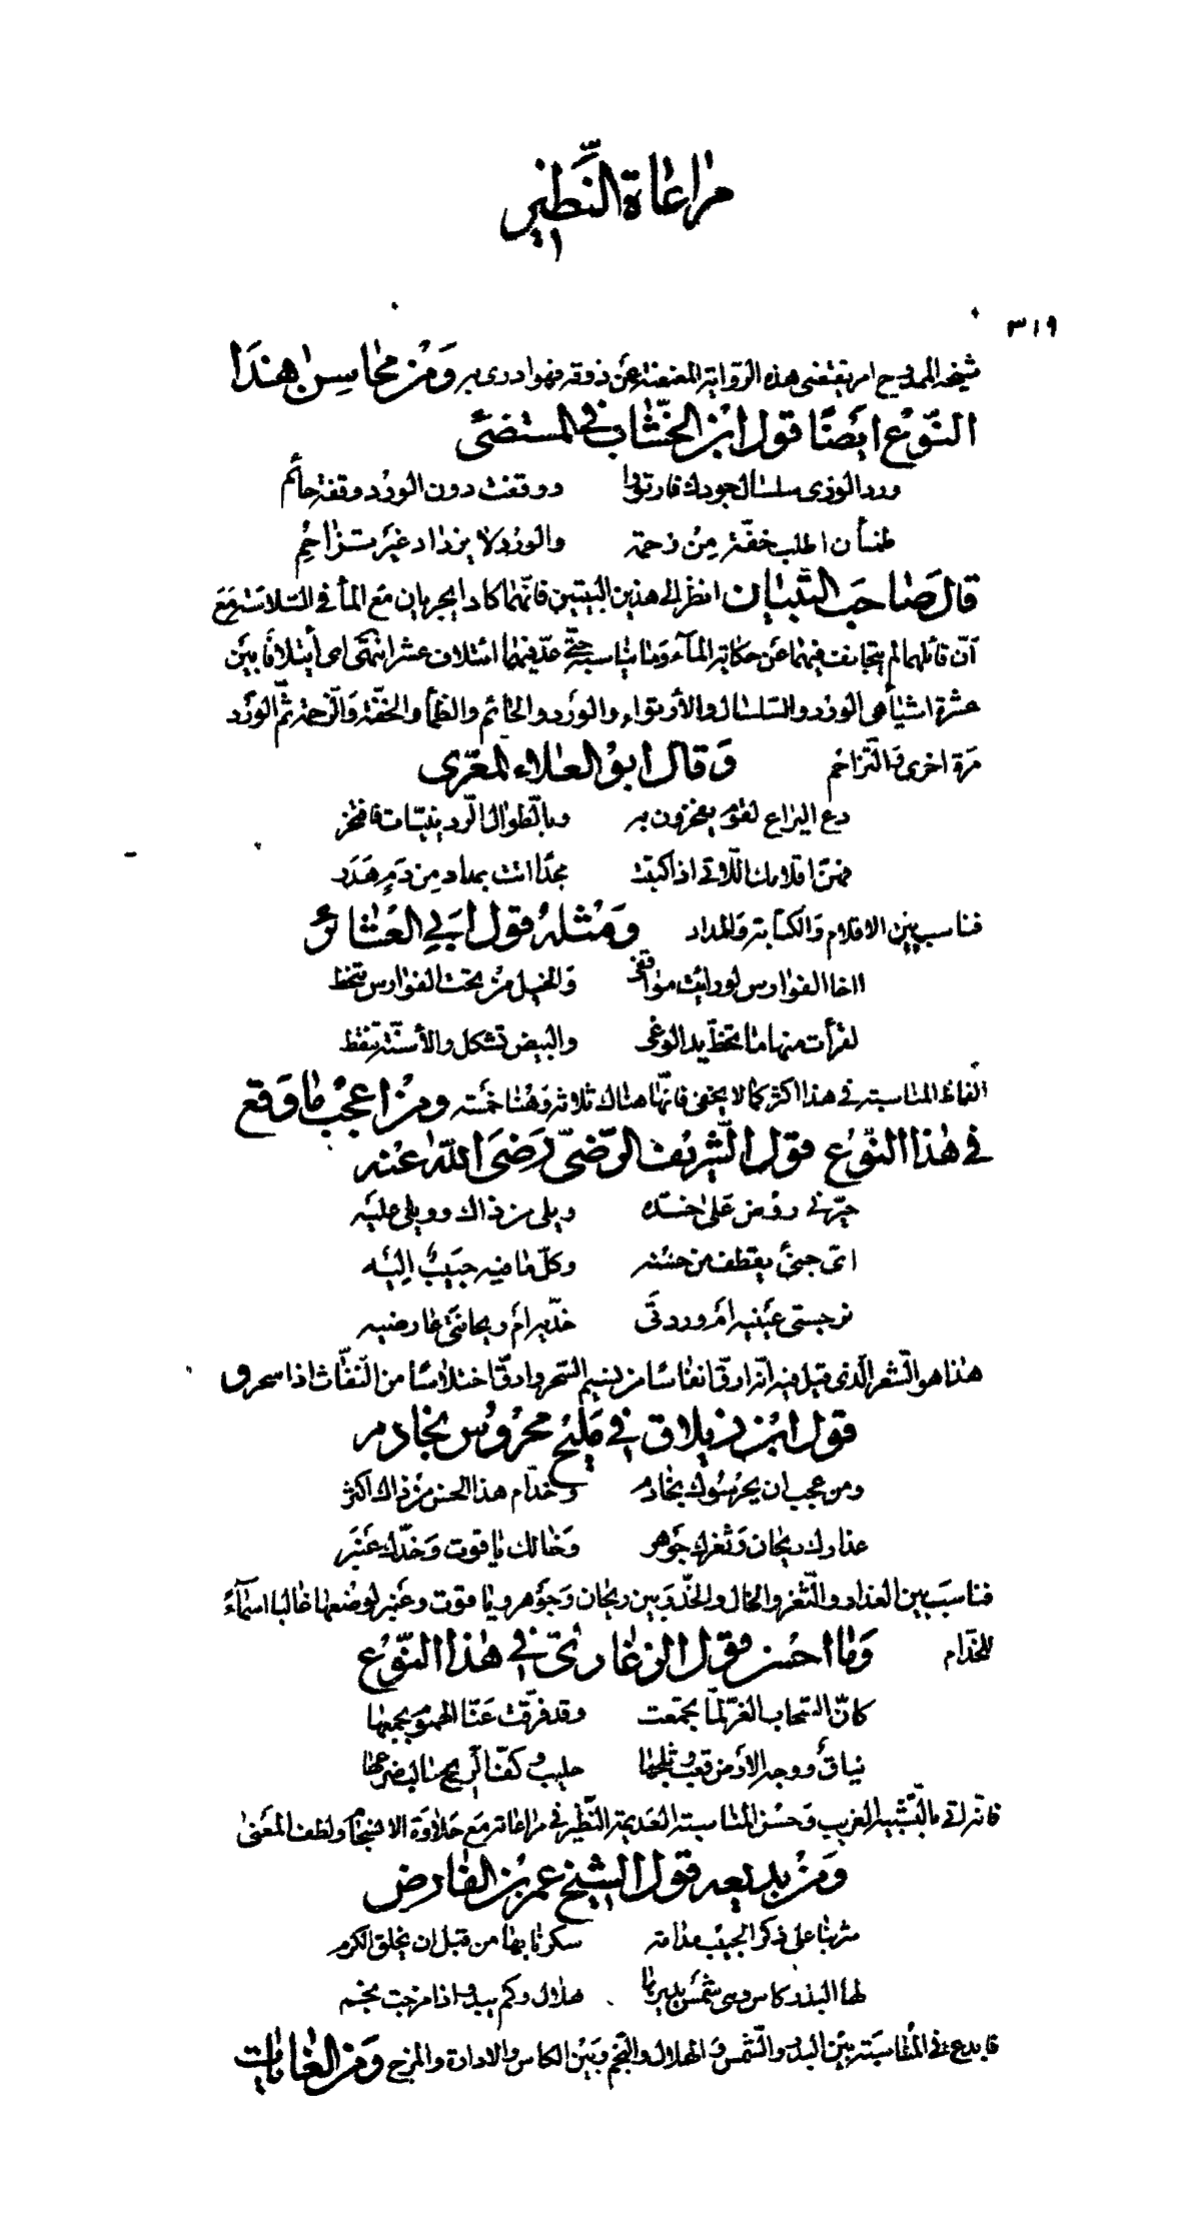 مراعاة النّظير
٣١٩
شيخه الممدوح امر يقتضى هذه الرّواية المعنعنة عن ذوقه فهو ادرى به ومن محاسن هذا
النّوع ايضًا قول ابن الخشّاب فى المستضئ
ورد الورى سلسال جودك فارتووا ووقفت دون الورد وقفة حائم
ظمأن اطلب خفّة من زحمة والورد لا يزداد غير تزاحم
قال صاحب التّبيان انظر الى هذين البيتين فانّهما كادا يجريان مع الماء فى السّلاسة مع
انّ قائلهما لم يتجانف فيهما عن حكاية الماء وما يناسبه حتّى عدّ فيهما ائتلاف عشر انتهى اى ايتلافا بين
عشرة اشياء هى الورد والسّلسال والأرتواء والورد والحائم والظمأ والخفّة والزّحمة ثمّ الورد
مرة اخرى والتّزاحم وقال ابو العلاء المعرّى
دع اليراع لقوم يفخرون به وبالطوال الرّدينيّات فافتخر
فهنّ اقلامك اللّاتى اذا كتبت مجدًا اتت بمداد من دم هدر
فناسب بين الاقلام والكتابة والمداد ومثله قول ابى العشائر
ااخا الفوارس لو رايت مواقفى والخيل من تحت الفوارس تنحط
لقرأت منها ما تخطّ يد الوغى والبيض تشكل والأسنّة تنقط
الفاظ المناسبة فى هذا اكثر كما لا يخفى فانّها هناك ثلاثة وهنا خمسة ومن اعجب ما وقع
فى هذا النّوع قول الشّريف الرّضىّ رضى اللّه عنه
حيّرنى روض على خدّه ويلى من ذاك وويلى عليه
اىّ جنىً يقطف من حسنه وكلّ ما فيه حبيب اليه
نرجستى عينيه ام وردتى خدّيه ام ريحانتى عارضيه
هذا هو الشّعر الّذى قيل فيه انّه ارقّ انفاسًا من نسيم السّحر وادقّ اختلاسًا من النّفّاث اذا سحر و
قول ابن زيلاق فى مليح محروس بخادم
ومن عجب ان يحرسوك بخادم وخدّام هذا الحسن من ذاك اكثر
عذارك ريحان وثغرك جوهر وخالك ياقوت وخدّك عنبر
فناسب بين العذار والثّغر والخال والخدّ وبين ريحان وجوهر وياقوت وعنبر لوضعها غالبا اسماء
للخدّام وما احسن قول الزغارىّ فى هذا النّوع
كانّ السّحاب الغرّ لمّا تجمّعت وقد فرّقت عنّا الهموم بجمعها
نياق ووجه الارض قعب وثلجها حليب وكفّ الرّيح حالب ضرعها
فانّه اتى بالتّشبيه الغريب وحسن المناسبة العديمة النّظير فى مراعاته مع حلاوة الانسجام ولطف المعنى
ومن بديعه قول الشيخ عمر بن الفارض
شربنا على ذكر الحبيب مدامة سكرنا بها من قبل ان يخلق الكرم
لها البدر كاس وهى شمس يديرها هلال وكم يبدو اذا مزجت نجم
فابدع فى المناسبة بين البدر والشّمس والهلال والنّجم وبين الكاس والادارة والمزج ومن الغايات